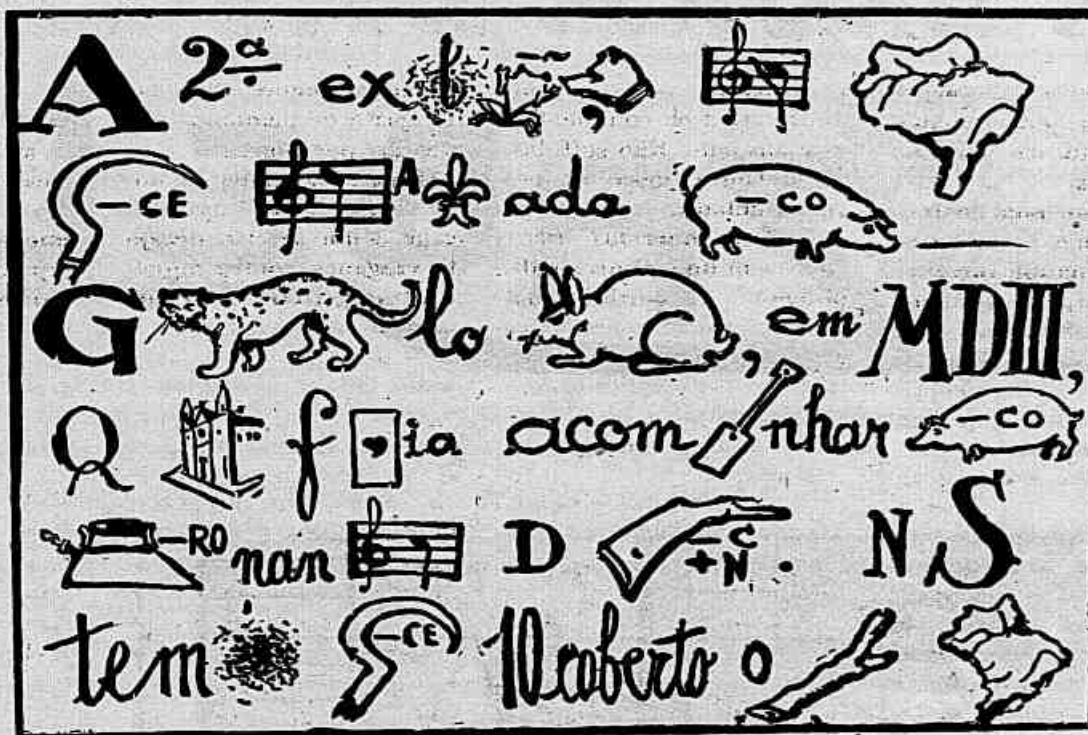 A 2ª ex ,
-CE A ada -CO
G lo , em MDIII,
Q f ia acom nhar -CO
-RO nan D -C +N . N S
tem -CE 10coberto o